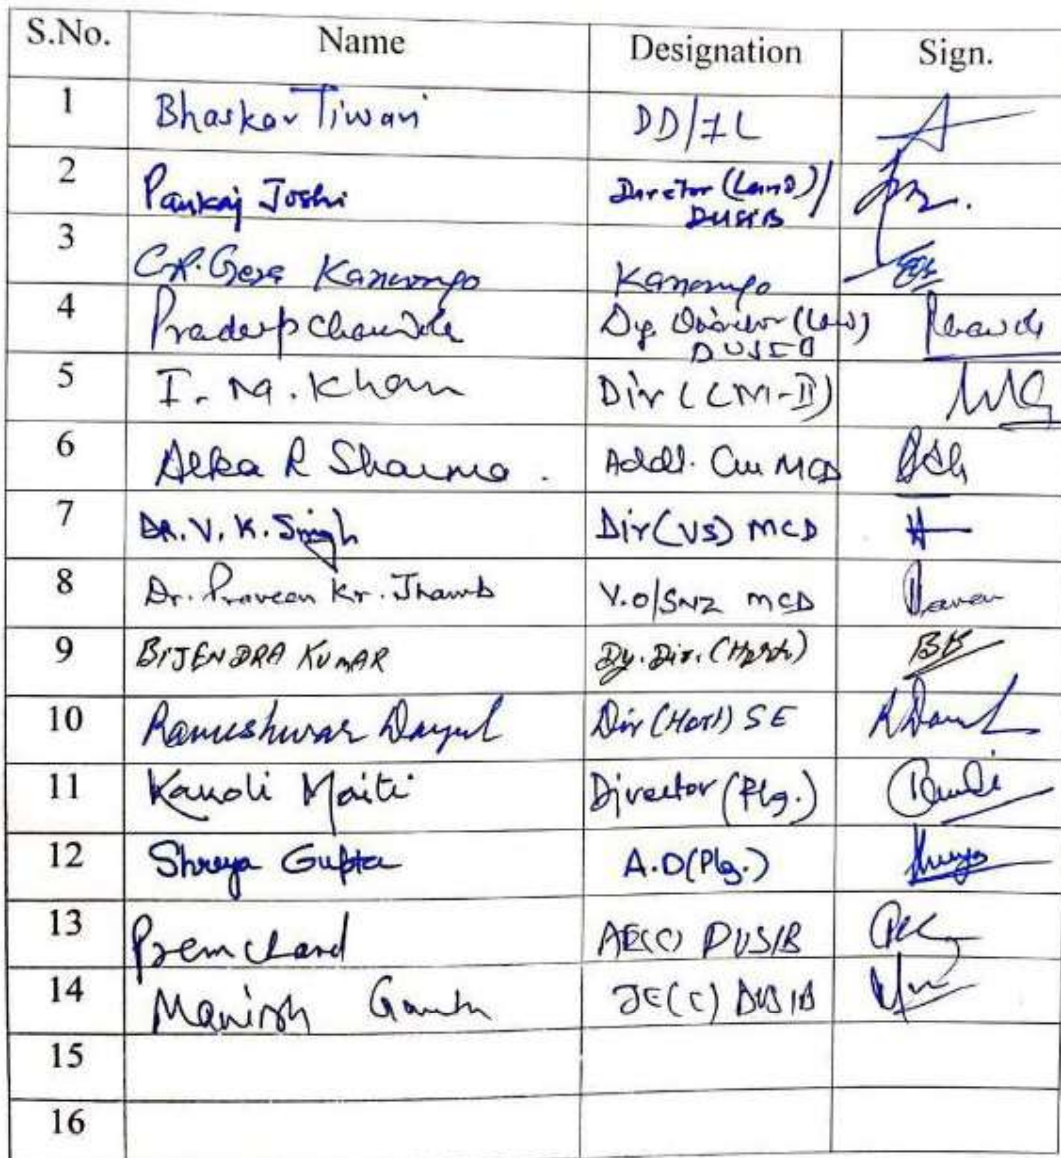 S.No. Name Designation Sign.
1 Bhaskar Tiwari DD/IL
2 Pankaj Joshi Director (Land)/
DUSIB
3 C.R. Kanungo Kanungo
4 Pradeep Dy. Director (Land)
DUSIB
5 I. M. Khan Dir (LM-II)
6 Alka R Sharma. Addl. Cm MCD
7 DR. V. K. Singh Dir(VS) MCD
8 Dr. Praveen Kr. V.O/SNZ MCD
9 BIJENDRA KUMAR Dy. Dir. BK
10 Rameshwar Dayal Dir (Hort) SE
11 Kakoli Maiti Director (Plg.)
12 Shreya Gupta A.D(Plg.) Shreya
13 Prem Chand AE(C) DUSIB
14 Manish JE(C) DUSIB
15
16